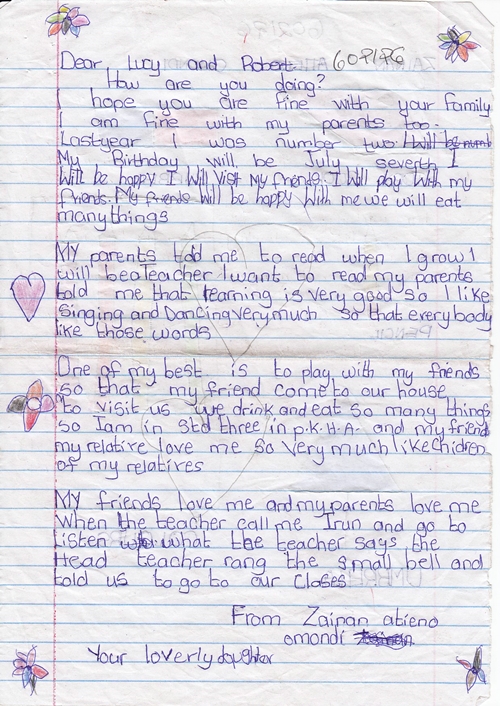 Dear, Lucy and Robert 609196
How are you doing?
I hope you are fine with your family
I am fine with my parents too.
Lastyear I was number two I will be numb
My Birthday will be July seventh I
Will be happy I will visit My friends. I will play with my
friends. My friends will be happy with me we will eat
manythings
MY parents told me to read when I grow I
will bea Teacher I want to read my parents
told me that learning is very good so I like
Singing and Dancing verymuch so that everybody
like those words
One of my best is to play with my friends
so that my friend come to our house
to visit us we drink and eat so many things
so Iam in Std three in p.k.H.A and my friend
my relative love me so very much like Chidren
of my relatives
MY friends love me and my parents love me
When the teacher call me Irun and go to
listen what the teacher says the
Head teacher rang the small bell and
told us to go to our Closes
From Zainan atieno
omondi
Your loverly daughter